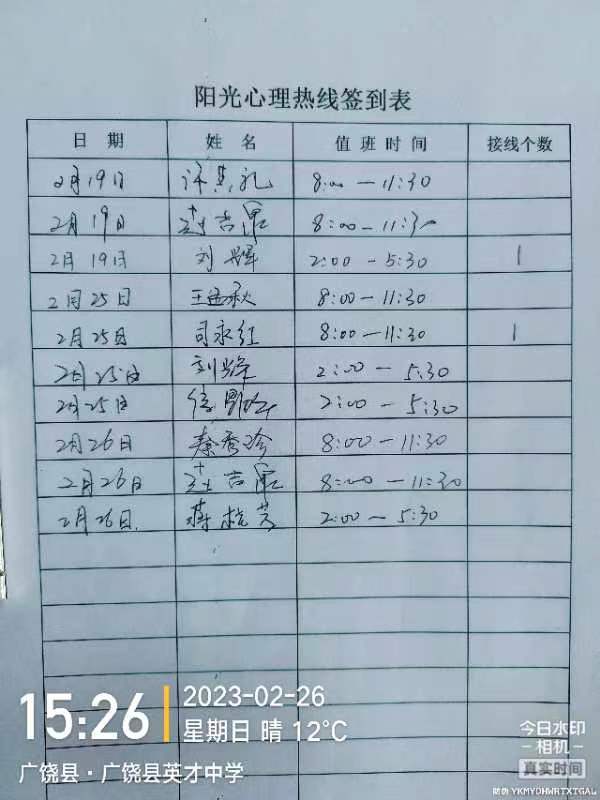 阳光心理热线签到表
日期 姓名 值班时间 接线个数
2月19日 8:00—11:30
2月19日 8:00—11:30
2月19日 刘辉 2:00—5:30 1
2月25日 8:00—11:30
2月25日 司永红 8:00—11:30 1
2月25日 2:00—5:30
2月25日 2:00—5:30
2月26日 秦秀珍 8:00—11:30
2月26日 8:00—11:30
2月26日. 2:00—5:30
15:26
2023-02-26
星期日 晴 12℃
广饶县·广饶县英才中学
今日水印
-相机-
真实时间
防伪 YKMYDHWRTXTGAL